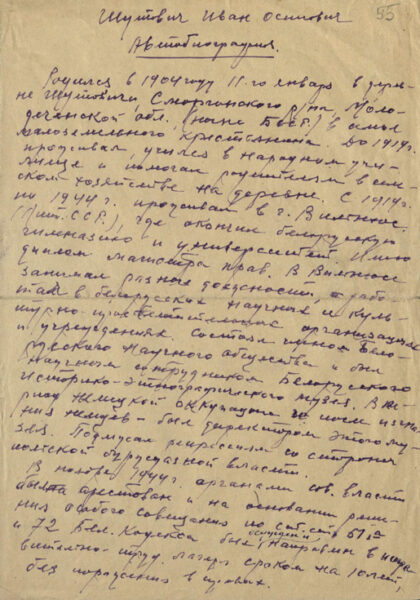 Шутович Иван Осипович
55
Автобиография.
Родился в 1904 году 11-го января в дерев-
не Шутовичи Сморгонского р-на, Моло-
дечненской обл. (ныне БССР) в семье
малоземельного крестьянина. До 1919 г.
проживал, учился в народном учи-
лище и помогал родителям в сель-
ском хозяйстве на деревне. С 1919 г.
по 1944 г. проживал в г. Вильнюс.
(Лит. ССР), где окончил белорусскую
гимназию и университет. Имею
диплом магистра прав. В Вильнюсе
занимал разные должности, а рабо-
тал в белорусских научных и куль-
турно-просветительных организациях
и учреждениях. Состоял членом Бело-
русского Научного общества и был
Научным сотрудником Белорусского
историко-этнографического музея. В пе-
риод немецкой оккупации и после изгна-
ния немцев - был директором этого му-
зея. Подпускал репрессиям со стороны
польской буржуазной власти.
В ноябре 1944 г. органами сов. власти
был арестован и на основании реше-
ния особого совещания по ст.ст. 63
и 72 Бел. Кодекса был осужден и направлен в испра-
вительно-труд. лагерь сроком на 10 лет,
без поражения в правах.